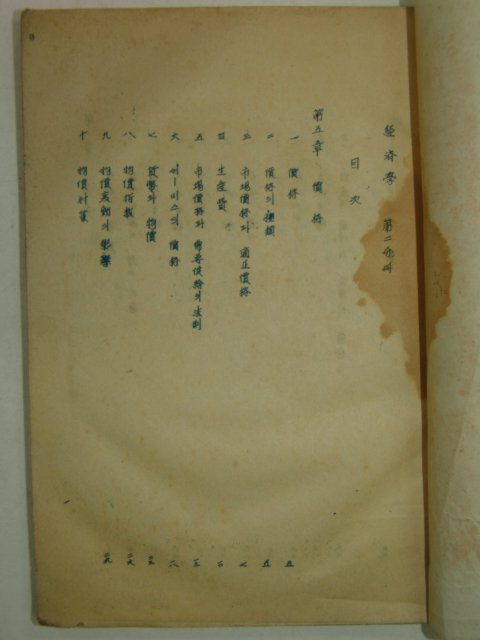 經濟學 第二分冊
目次
第五章 價格
一 價格 五
二 價格의 種類 五
三 市場價格과 適正價格 七
四 生産費
五 市場價格과 需要供給의 法則
六 써ー비스의 價格 一八
七 貨幣와 物價
八 物價指數 二六
九 物價變動의 影響 二九
十 物價計算